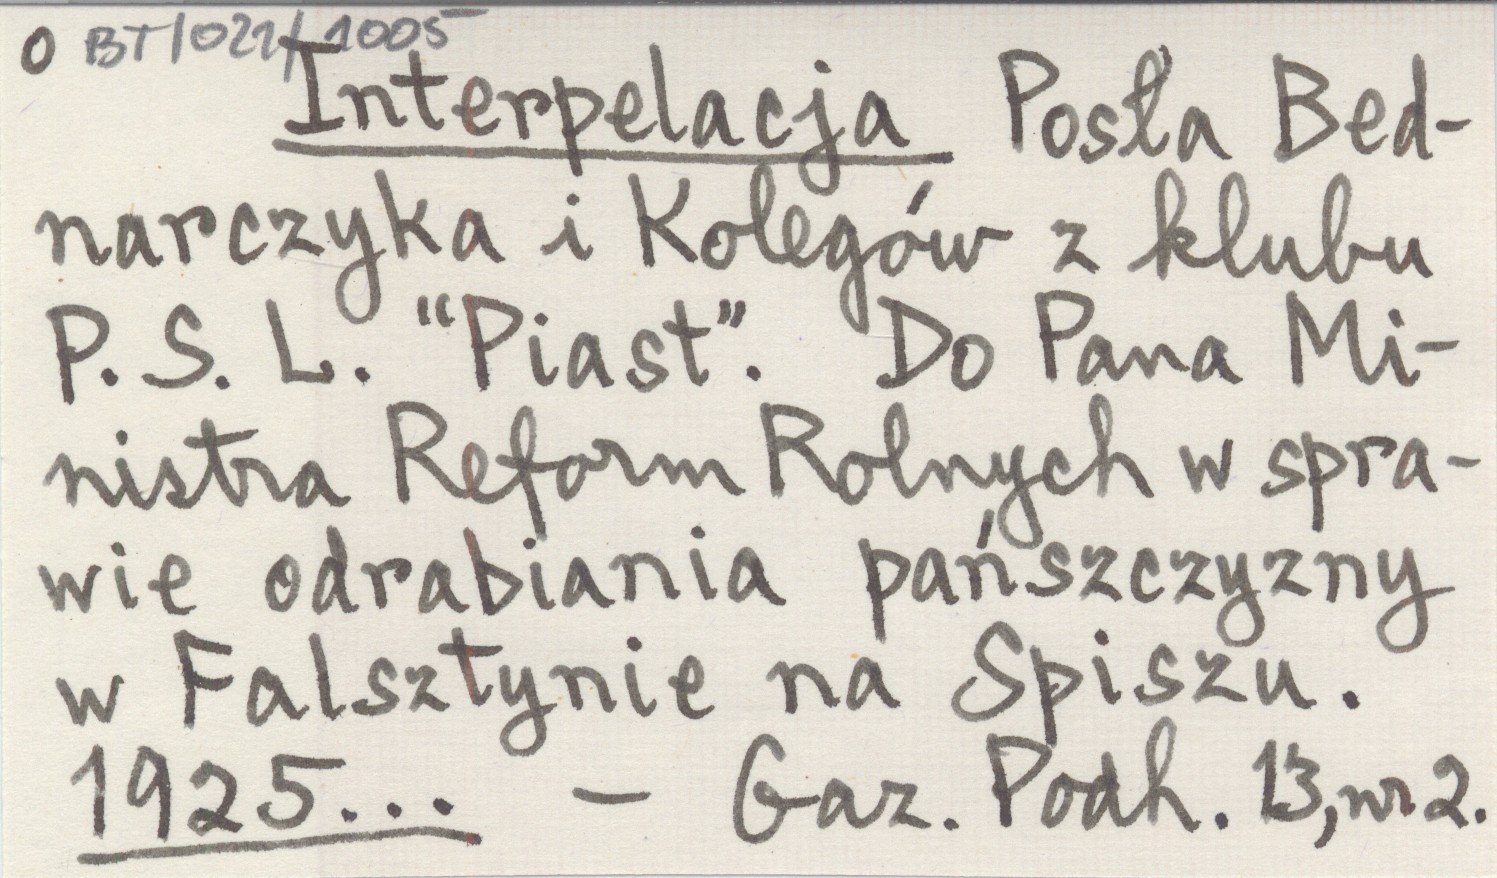 O BT/021/1005
Interpelacja Posła Bed-
narczyka i Kolegów z klubu
P. S. L. “Piast”. Do Pana Mi-
nistra Reform Rolnych w spra-
wie odrabiania pańszczyzny
w Falsztynie na Spiszu.
1925... — Gaz. Podh. 13, nr 2.